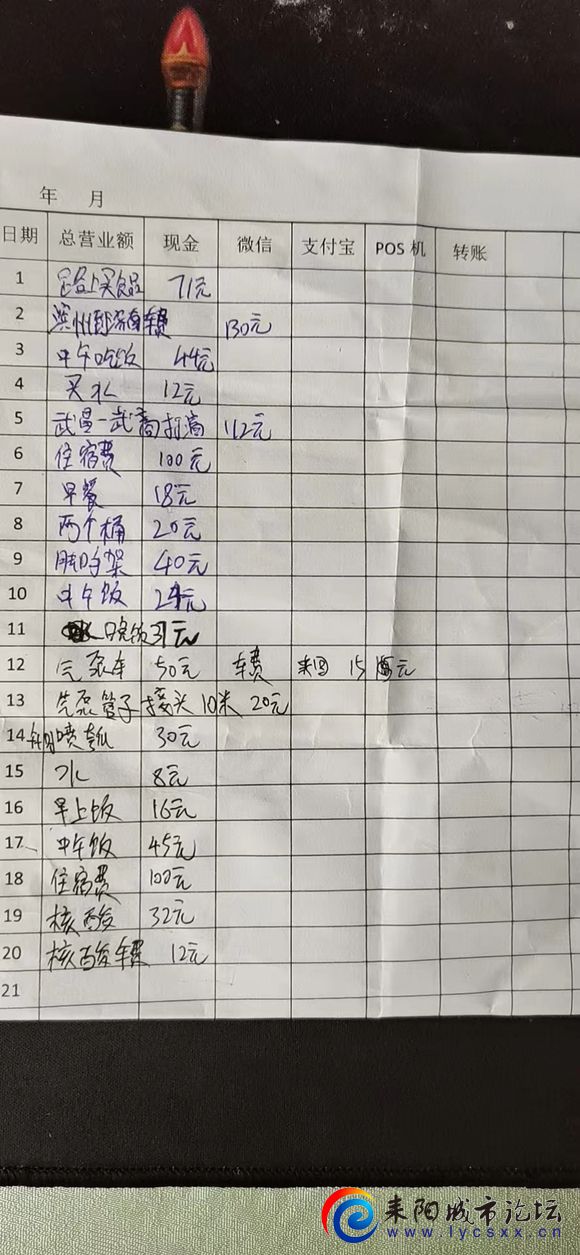 年 月
日期 总营业额 现金 微信 支付宝 POS 机 转账
1 路上买食品 71元
2 滨州到济南车费 130元
3 中午吃饭 44元
4 买水 12元
5 武昌一武 打滴 112元
6 住宿费 100元
7 早餐 18元
8 两个桶 20元
9 脚手架 40元
10 中午饭 元
11 晚饭 31元
12 气泵车 50元 车费 来回 15 元
13 气泵管子接头10米 20元
14 喷壶 30元
15 水 8元
16 早上饭 16元
17 中午饭 45元
18 住宿费 100元
19 核酸 32元
20 核酸车费 12元
21
耒阳城市论坛
www.lycsxx.cn